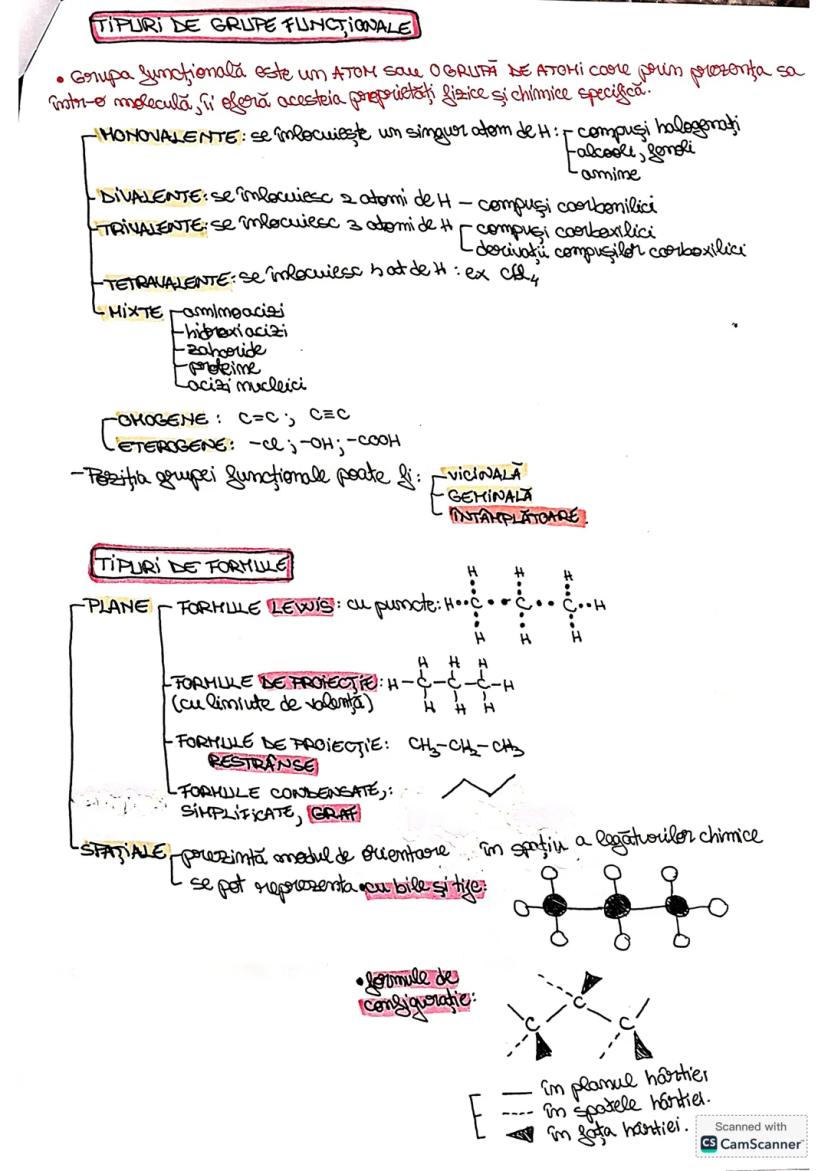 TIPURI DE GRUPE FUNCȚIONALE
• Grupa funcțională este un ATOM sau O GRUPĂ DE ATOMI care prin prezența sa
într-o moleculă, îi oferă acesteia proprietăți fizice și chimice specifică.
MONOVALENTE: se înlocuiește un singur atom de H: compuși halogenați
alcooli, fenoli
amine
DIVALENTE: se înlocuiesc 2 atomi de H – compuși carbonilici
TRIVALENTE: se înlocuiesc 3 atomi de H compuși carboxilici
derivații compușilor carboxilici
TETRAVALENTE: se înlocuiesc 4 at de H : ex CCl4
MIXTE aminoacizi
hidroxiacizi
zaharide
proteine
acizi nucleici
OMOGENE: C=C ; C≡C
ETEROGENE: -Cl ; -OH ; -COOH
- Poziția grupei funcționale poate fi: VICINALĂ
GEMINALĂ
ÎNTÂMPLĂTOARE.
TIPURI DE FORMULE
H H H
PLANE FORMULE LEWIS: cu puncte: H••C••C••C••H
H H H
H H H
FORMULE DE PROIECȚIE: H-C-C-C-H
(cu liniuțe de valență) H H H
FORMULE DE PROIECȚIE: CH3-CH2-CH3
RESTRÂNSE
FORMULE CONDENSATE,:
SIMPLIFICATE, GRAF
SPAȚIALE prezintă modul de orientare în spațiu a legăturilor chimice
se pot reprezenta • cu bile și tije:
• formule de
configurație:
C
C C
în planul hârtiei
în spatele hârtiei.
în fața hârtiei.
Scanned with
CS CamScanner